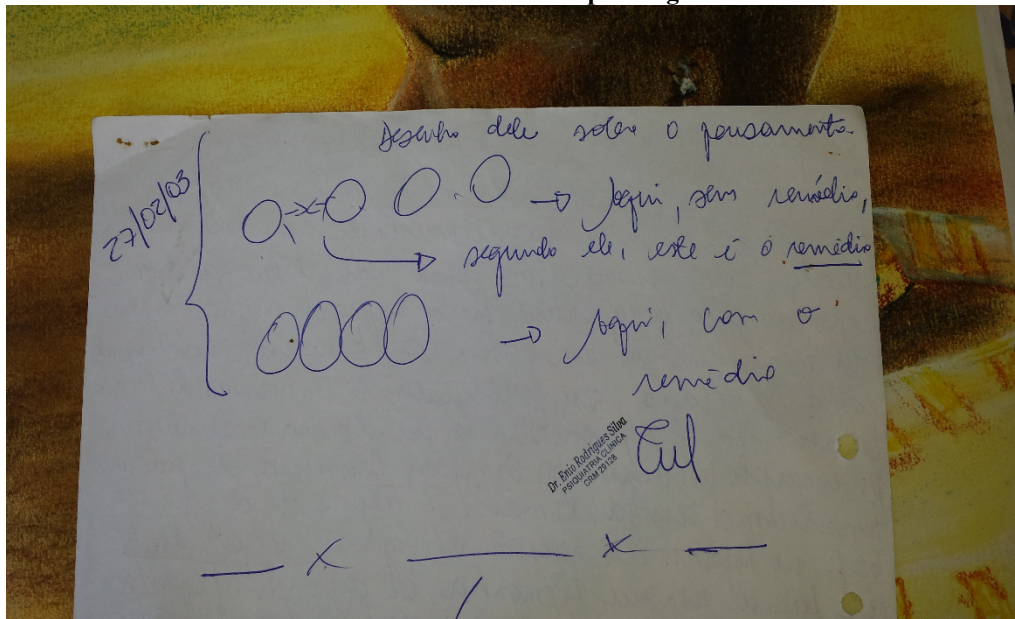 Desenho dele sobre o pensamento
27/02/03
→ Aqui, sem remédio,
→ segundo ele, este é o remédio
→ Aqui, com o
remédio
Dr. Enio Rodrigues Silva
PSIQUIATRIA CLÍNICA
CRM 29128